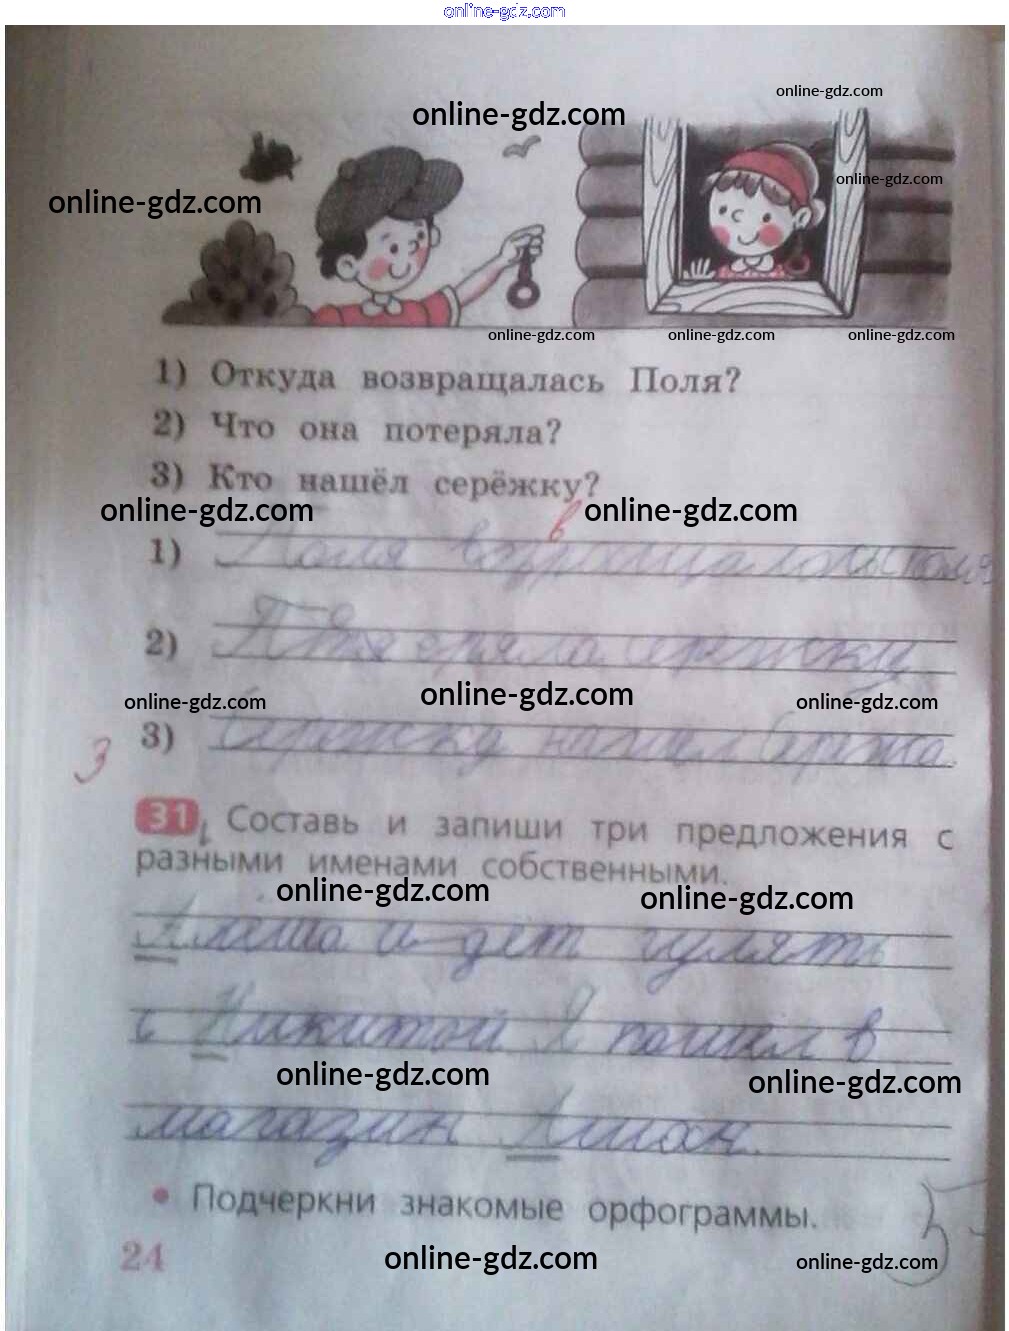 online-gdz.com
online-gdz.com
online-gdz.com
online-gdz.com
online-gdz.com
online-gdz.com online-gdz.com online-gdz.com
1) Откуда возвращалась Поля?
2) Что она потеряла?
3) Кто нашёл серёжку?
online-gdz.com online-gdz.com
в
1) Поля
2)
online-gdz.com online-gdz.com online-gdz.com
3) нашел Сережа.
3
31 Составь и запиши три предложения с
разными именами собственными.
online-gdz.com online-gdz.com
Алеша идет гулять
с Никитой Я пошел в
online-gdz.com online-gdz.com
магазин Ашан.
• Подчеркни знакомые орфограммы.
5-
24 online-gdz.com online-gdz.com